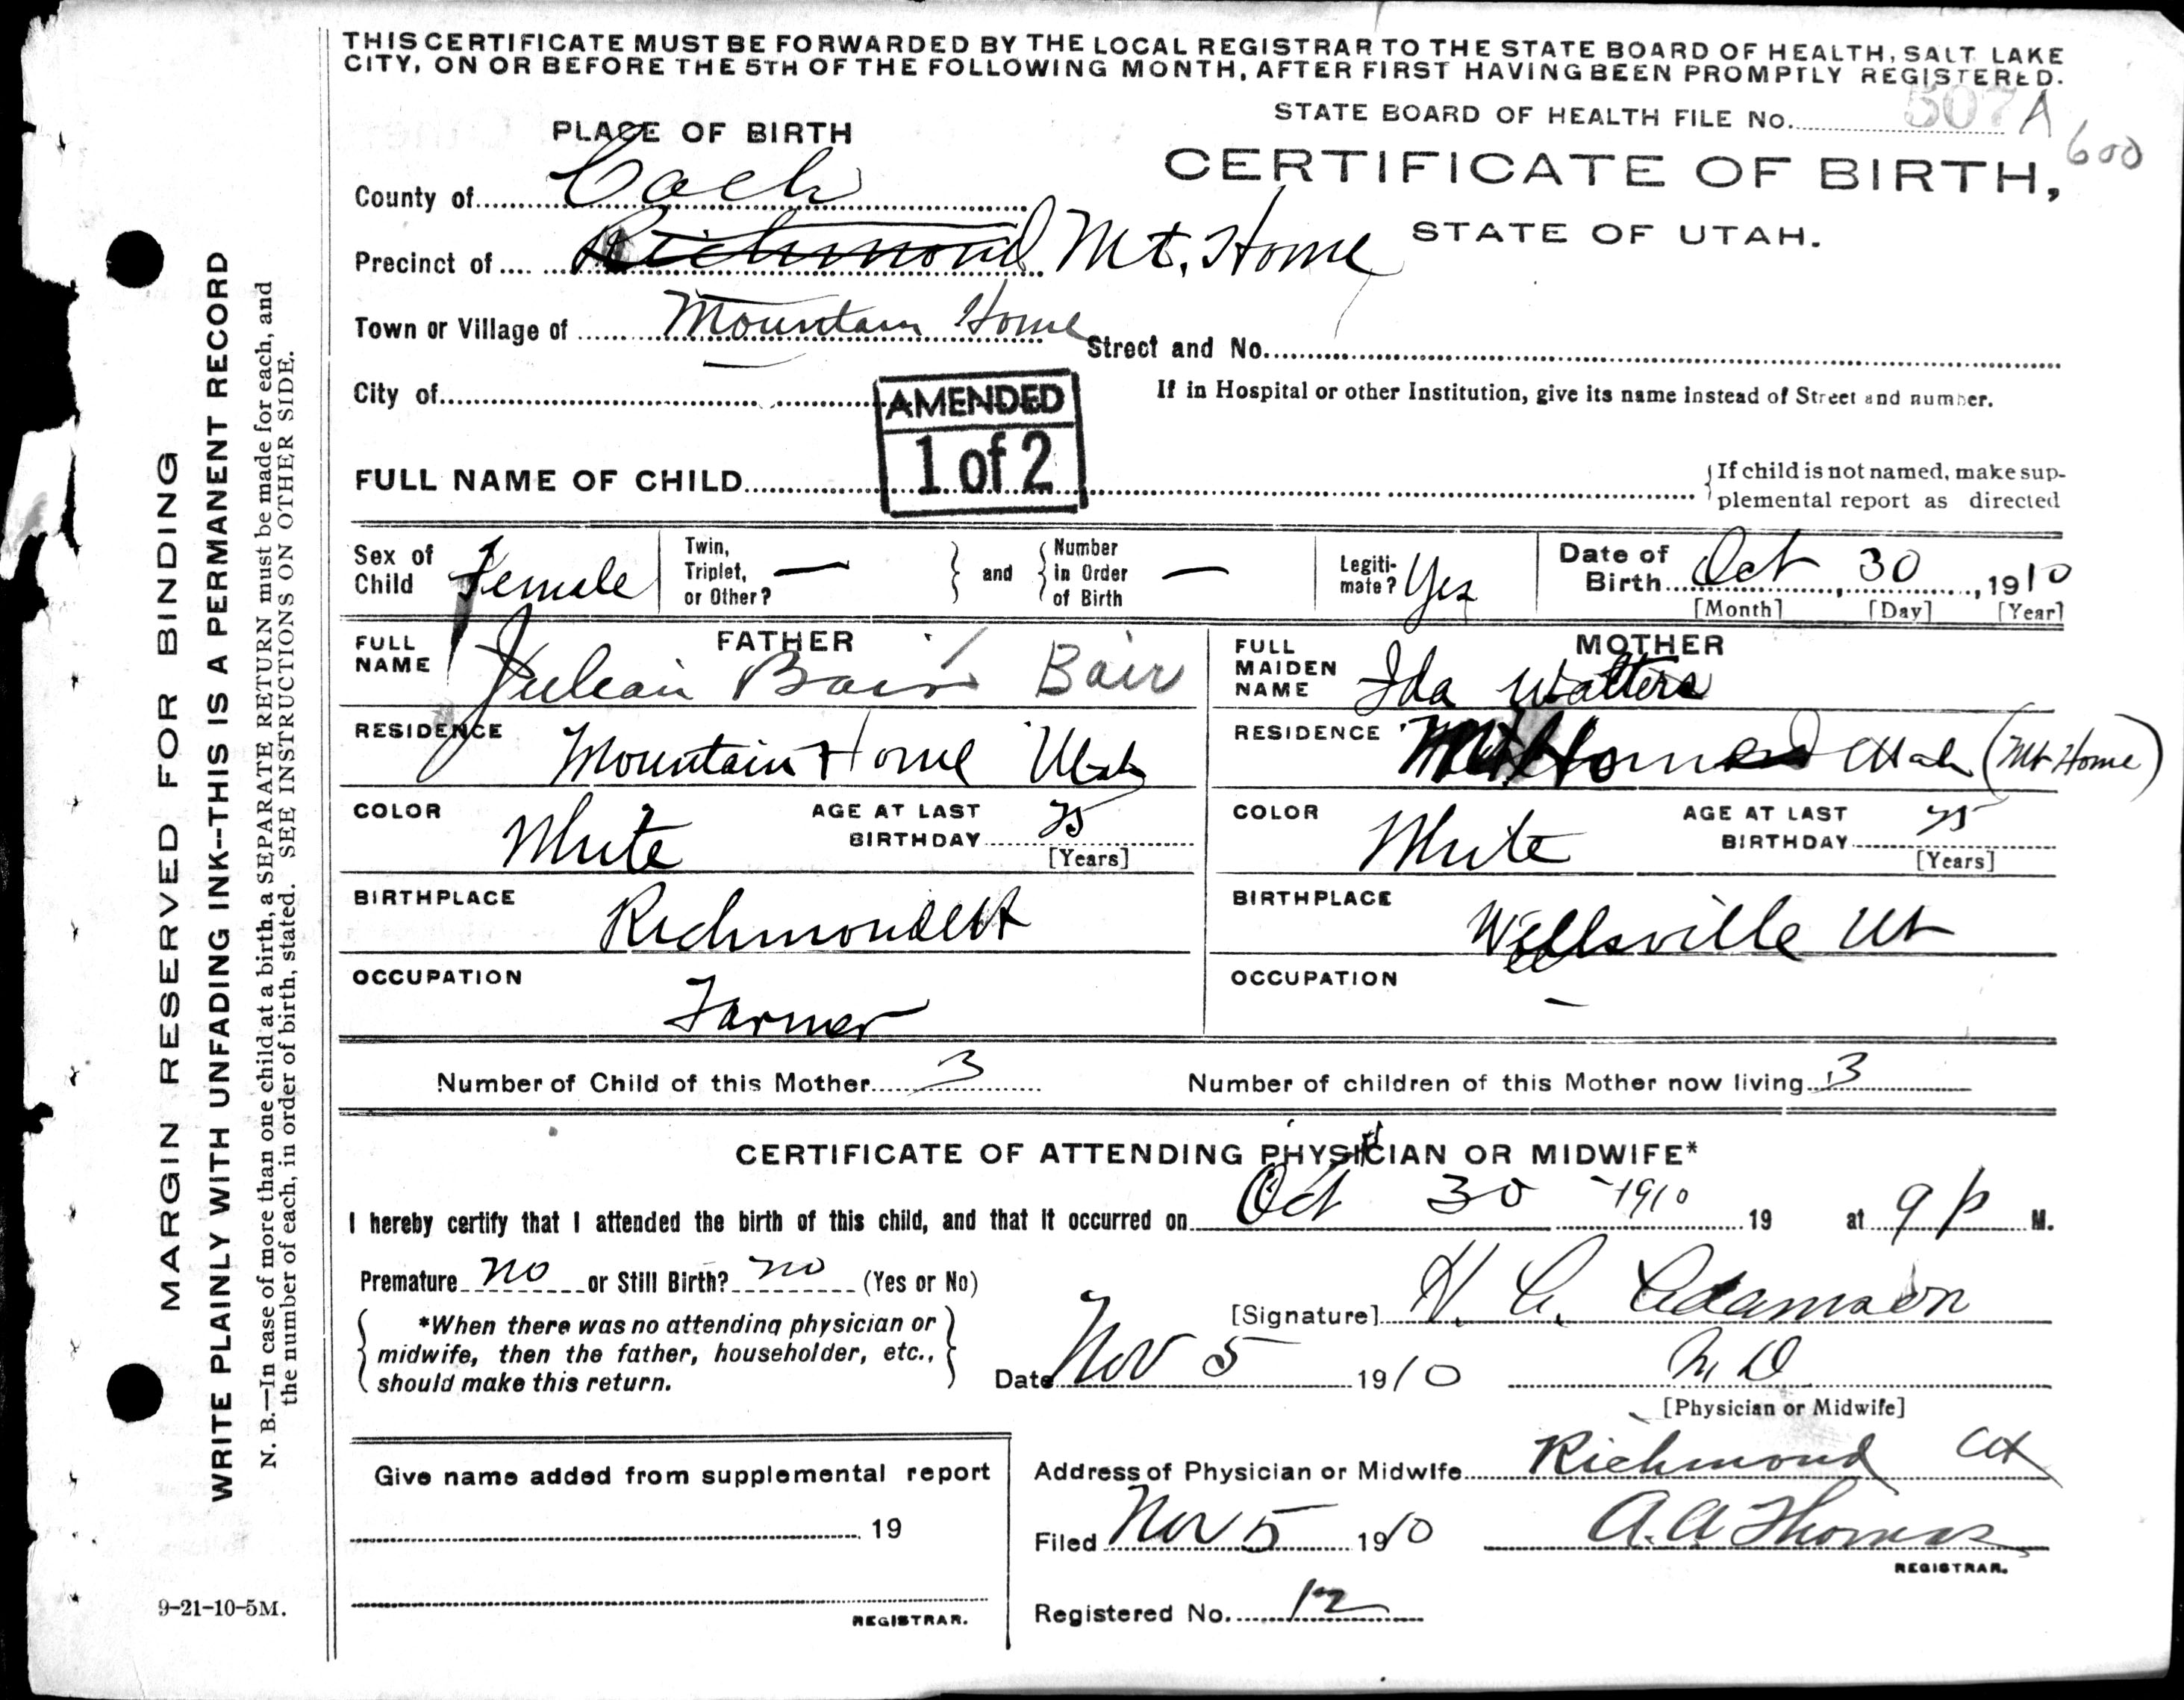 THIS CERTIFICATE MUST BE FORWARDED BY THE LOCAL REGISTRAR TO THE STATE BOARD OF HEALTH, SALT LAKE
CITY, ON OR BEFORE THE 5TH OF THE FOLLOWING MONTH, AFTER FIRST HAVING BEEN PROMPTLY REGISTERED.
STATE BOARD OF HEALTH FILE No. 507 A
600
PLACE OF BIRTH
CERTIFICATE OF BIRTH,
STATE OF UTAH.
County of Cach
Precinct of Richmond Mt. Home
Town or Village of Mountain Home
Street and No.
City of
If in Hospital or other Institution, give its name instead of Street and number.
AMENDED
1 of 2
FULL NAME OF CHILD
If child is not named, make sup-
plemental report as directed
Sex of Child Female
Twin, Triplet, or Other? — and Number in Order of Birth —
Legiti-mate? Yes
Date of Birth Oct 30, 1910
[Month] [Day] [Year]
FATHER
FULL NAME Julian Bair Bair
MOTHER
FULL MAIDEN NAME Ida Watters
RESIDENCE Mountain Home Utah
RESIDENCE Mt Home Utah (Mt Home)
COLOR White
AGE AT LAST BIRTHDAY 25
[Years]
COLOR White
AGE AT LAST BIRTHDAY 25
[Years]
BIRTHPLACE Richmond Ut
BIRTHPLACE Wellsville Ut
OCCUPATION Farmer
OCCUPATION —
Number of Child of this Mother 3
Number of children of this Mother now living 3
CERTIFICATE OF ATTENDING PHYSICIAN OR MIDWIFE*
I hereby certify that I attended the birth of this child, and that it occurred on Oct 30 - 1910 19 at 9 p M.
Premature no or Still Birth? no (Yes or No)
*When there was no attending physician or
midwife, then the father, householder, etc.,
should make this return.
[Signature] H. C. Adamson
Date Nov 5 1910
M D
[Physician or Midwife]
Give name added from supplemental report
19
REGISTRAR.
Address of Physician or Midwife Richmond Ut
Filed Nov 5 1910
A. A. Thomas
REGISTRAR.
Registered No. 12
MARGIN RESERVED FOR BINDING
WRITE PLAINLY WITH UNFADING INK--THIS IS A PERMANENT RECORD
N. B.—In case of more than one child at a birth, a SEPARATE RETURN must be made for each, and
the number of each, in order of birth, stated. SEE INSTRUCTIONS ON OTHER SIDE.
9-21-10-5M.